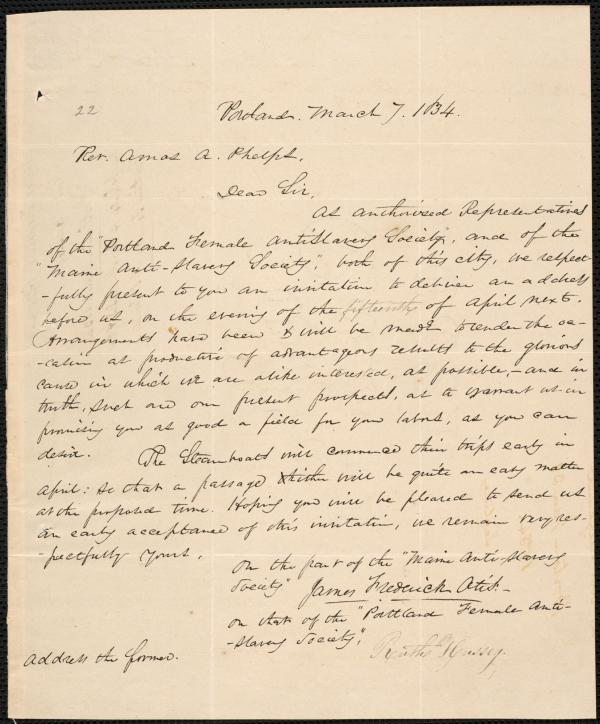 22
Portland. March 7. 1834.
Rev. Amos A. Phelps,
Dear Sir,
As authorized Representatives
of the "Portland Female AntiSlavery Society", and of the
"Maine Anti-Slavery Society", both of this city, we respect-
-fully present to you an invitation to deliver an address
before us, on the evening of the fifteenth of April next.
Arrangements have been & will be made to render the oc-
-casion as productive of advantageous results to the glorious
cause in which we are alike interested, as possible,- and in
truth, such are our present prospects, as to warrant us in
promising you as good a field for your labors, as you can
desire.
The Steamboats will commence their trips early in
April: so that a passage hither will be quite an easy matter
at the proposed time. Hoping you will be pleased to send us
an early acceptance of this invitation, we remain very res-
-pectfully yours,
On the part of the "Maine Anti-Slavery
Society" James Frederick Otis.-
on that of the "Portland Female Anti-
-slavery Society",
Hussey.
Address the former.